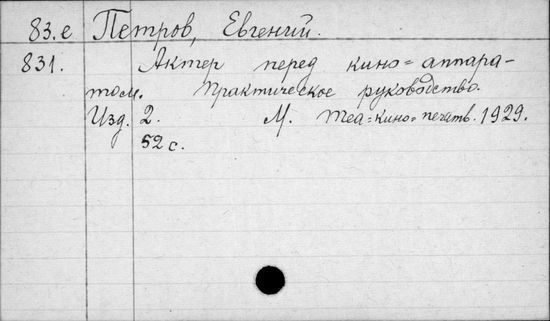 83.е Петров, Евгений.
831. Актер перед кино=аппара-
том. Практическое руководство.
Изд. 2. М. Теа=кино=печать. 1929.
52 с.